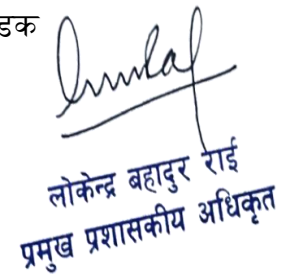 डक
लोकेन्द्र बहादुर राई
प्रमुख प्रशासकीय अधिकृत